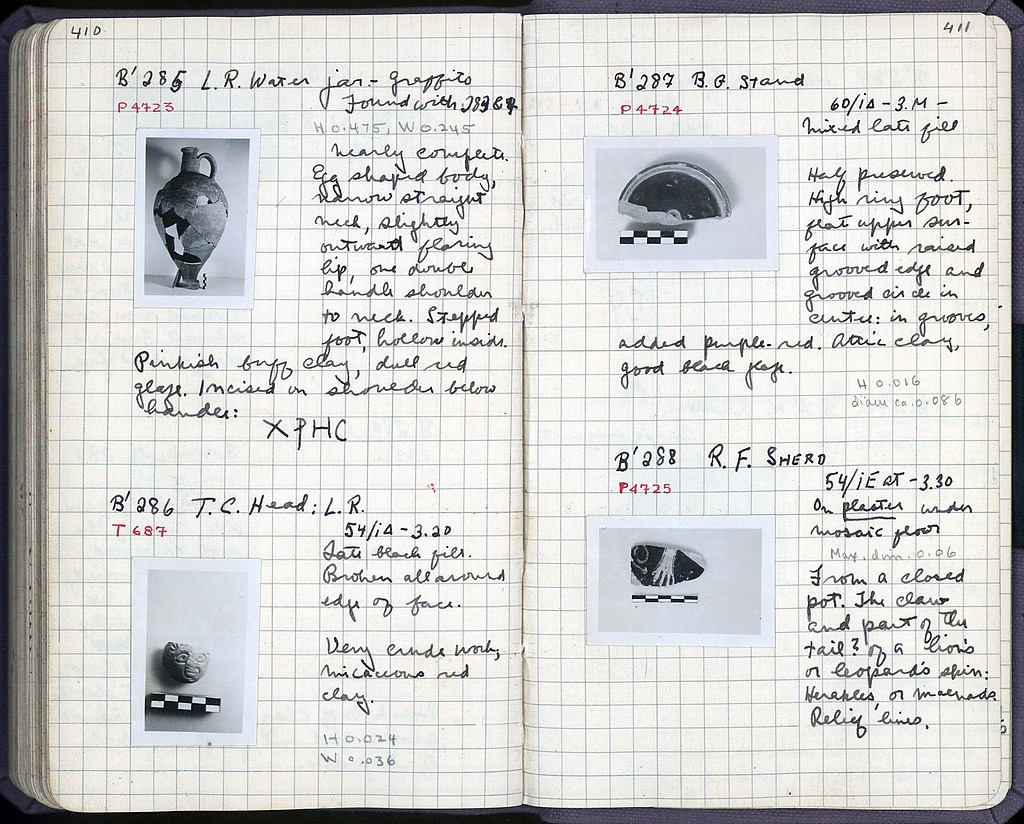 410
B' 285 L.R. Water jar - Graffito
P 4723
Found with 283 &
H 0.475, W 0.245
Nearly complete.
Egg shaped body,
narrow straight
neck, slightly
outward flaring
lip, one double
handle shoulder
to neck. Stepped
foot, hollow inside.
Pinkish buff clay, dull red
glaze. Incised on shoulder below
handle:
ΧΡΗC
B' 286 T.C. Head: L.R.
T 687
54/ιΔ - 3.20
Late black fill.
Broken all around
edge of face.
Very crude work,
micaceous red
clay.
H 0.024
W 0.036
411
B' 287 B.G. Stand
P 4724
60/ιΔ - 3.M -
Mixed late fill
Half preserved.
High ring foot,
flat upper sur-
face with raised
grooved edge and
grooved circle in
center: in grooves,
added purple-red. Attic clay,
good black glaze.
H 0.016
diam ca. 0.086
B' 288 R.F. SHERD
P4725
54/ιE at -3.30
On plaster under
mosaic floor
Max. dim. 0.06
From a closed
pot. The claw
and part of the
tail? of a lion's
or leopard's skin:
Herakles or maenads.
Relief lines.